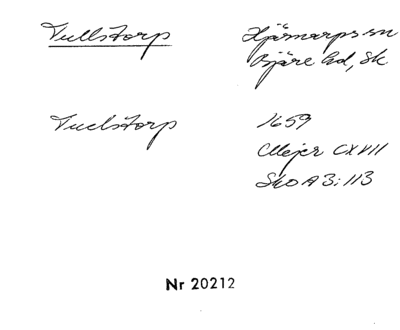 Tullstorp
Hjärnarps sn
Bjäre hd, Sk.
Tuelstorp
1659
Mejer CXVII
SkOA 3:113
Nr 20212